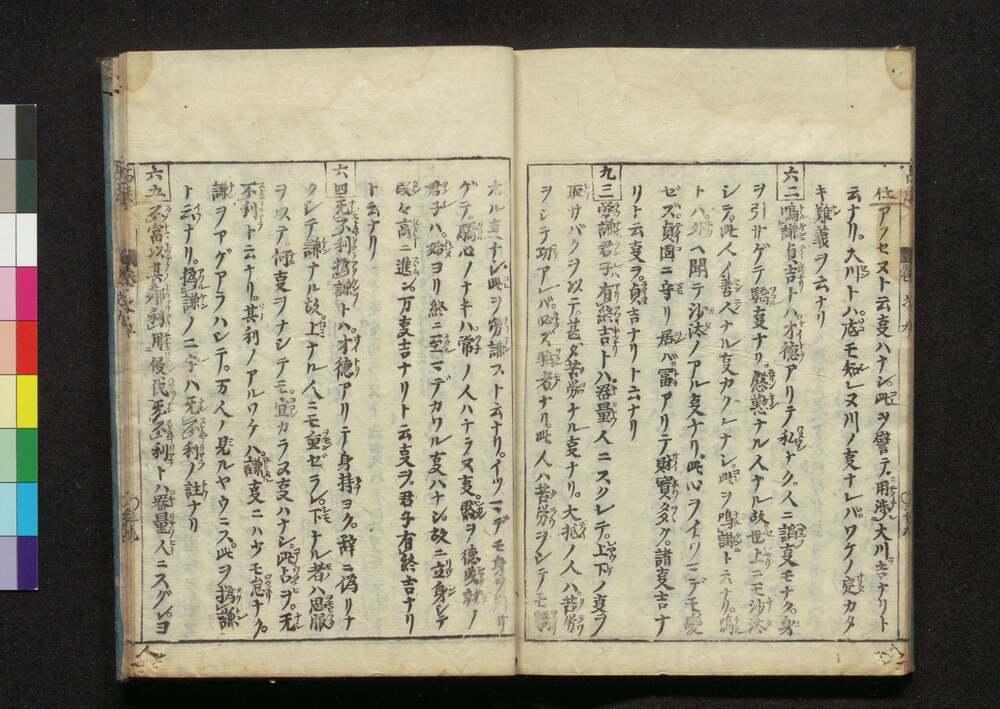 位アラセヌト云叓ハナシ此ヲ譬テ用渉大川吉ナリト
云ナリ。大川トハ底モ知レヌ川ノ叓ナレバワケノ定カタ
キ難義ヲ云ナリ
六二 鳴謙貞吉トハ才德アリテ私ナク。人ニ諂叓モナク。身
ヲ引サゲテ驕叓ナリ。慇懃ナル人ナル故世上ニモ沙汰
シテ。此人ノ善人ナル叓カクレナシ。此ヲ鳴謙ト云ナリ。鳴
トハ外ヘ聞テ沙汰ノアル叓ナリ。此心ヲイツマデモ変
ゼズ。貞固ニ守リ居バ冨アリテ財寳タタク。諸叓吉ナ
リト云叓ヲ。貞吉ナリト云ナリ
九三 労謙君子有終吉トハ器量人ニスクレテ。上下ノ叓ヲ
取サバクヲ以テ。甚タ苦労ナル叓ナリ。大抵ノ人ハ。苦労
ヲシテ功アレバ。必ズ驕者ナリ。此人ハ苦労ヲシテモ
ホル叓ナシ。此ヲ労謙フト云ナリ。イツマデモ身ヲ
ゲテ。驕心ノナキハ常ノ人ハナラヌ叓。
君子ハ。始ヨリ終ニ至マデカワル叓ハナシ。故ニ立身シテ
段々高ニ進ン。万叓吉ナリト云叓ヲ。君子有終吉ナリ
ト云ナリ
六四 无不利撝謙トハ。才德アリテ身持ヨク。辞ニ偽リナ
クシテ謙ナル故。上ナル人ニモ重ゼラレ。下ナル者ハ思服
ヲ以テ。何叓ヲナシテモ。宜カラヌ叓ハナシ。此占ヲ。无
不利ト云ナリ。其利ノアルワケハ。謙叓ニハ少モ怠ナク。
謙ヲアゲアラハシテ。万人ノ見ルヤウニス。此ヲ撝謙
ト云ナリ。撝謙ノ二字ハ无不利ノ註ナリ
六五 不富以其鄰利用侵伐无不利トハ器量人ニスグレヨ